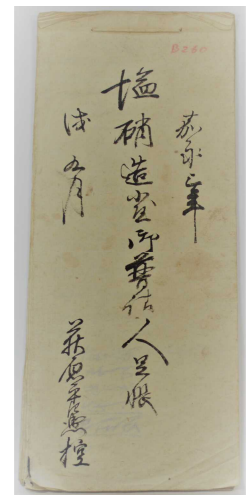 嘉永三年
塩硝造営御普請人足帳
戌五月
萩原
控